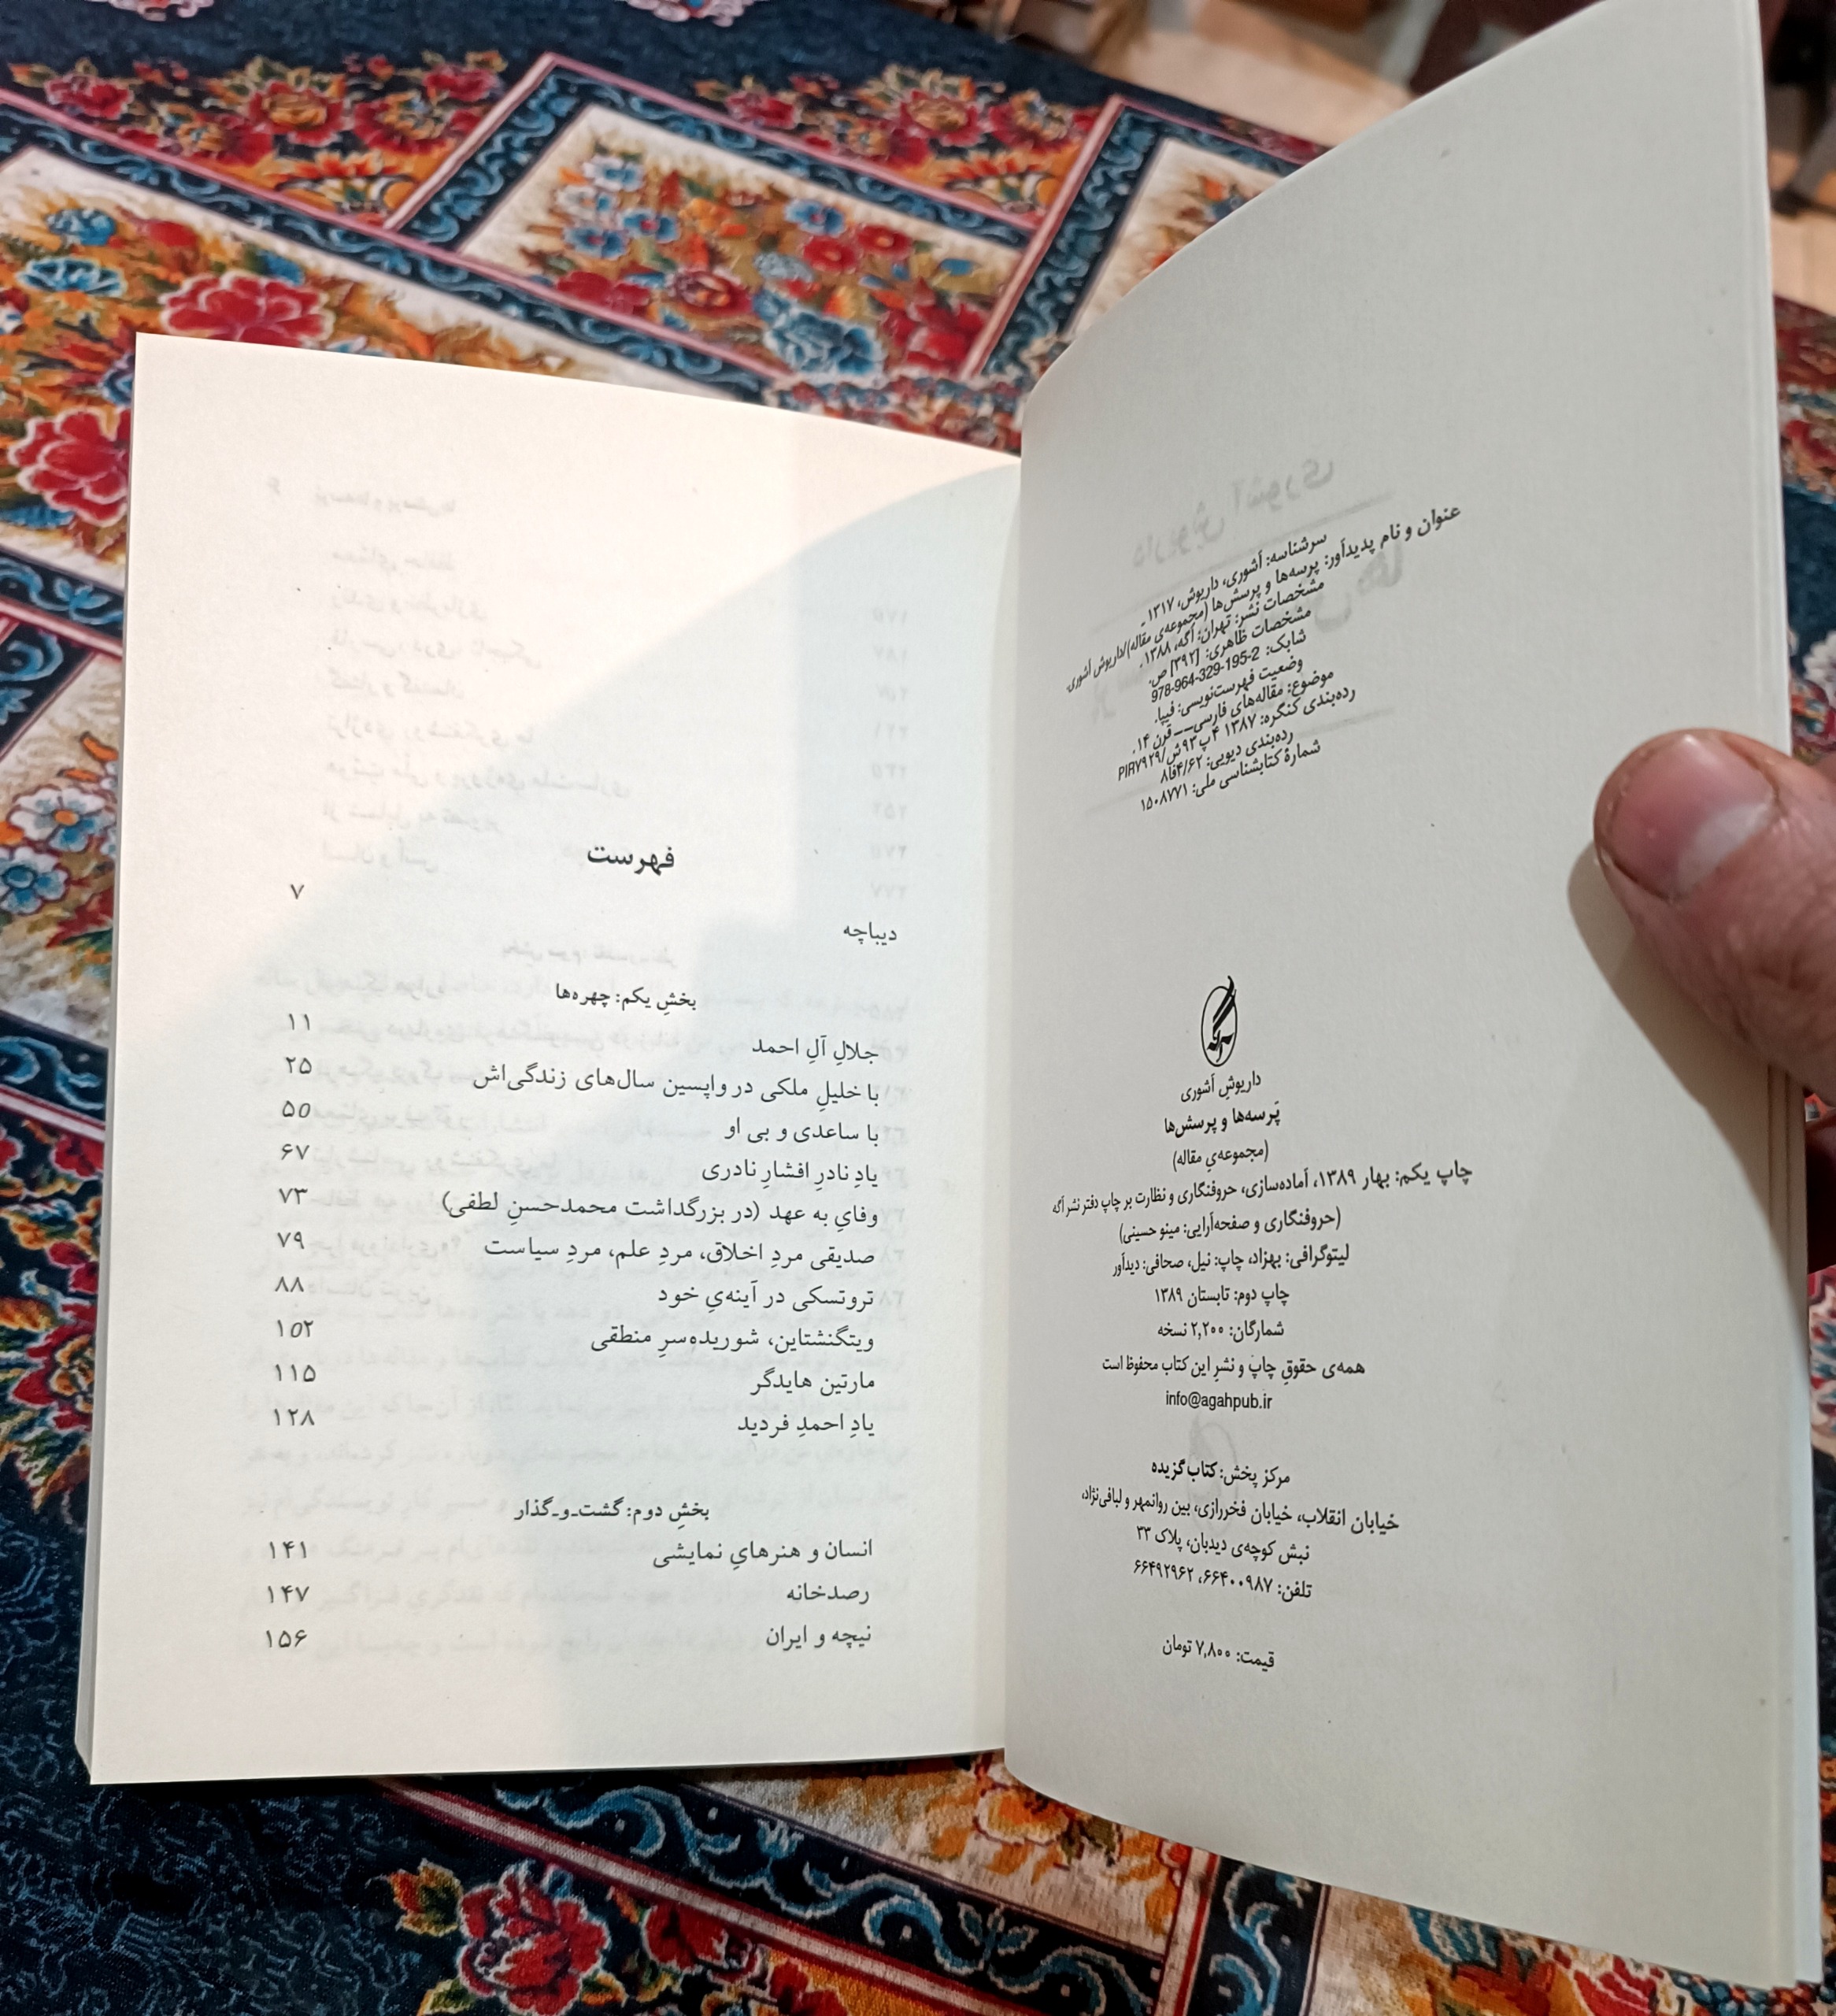 سرشناسه: آشوری، داریوش، ۱۳۱۷ـ
عنوان و نام پدیدآور: پرسه‌ها و پرسش‌ها (مجموعه‌ی مقاله)/داریوش آشوری.
مشخصات نشر: تهران: آگه، ۱۳۸۸.
مشخصات ظاهری: [۳۹۲] ص.
شابک: 978-964-329-195-2
وضعیت فهرست‌نویسی: فیپا.
موضوع: مقاله‌های فارسی ـــ قرن ۱۴.
رده‌بندی کنگره: ۱۳۸۷ ۴پ۹۳ش/PIR۷۹۲۹
رده‌بندی دیویی: ۸فا۴/۶۲
شمارهٔ کتابشناسی ملی: ۱۵۰۸۷۷۱
آگه
داریوشِ آشوری
پَرسه‌ها و پرسش‌ها
(مجموعه‌یِ مقاله)
چاپ یکم: بهار ۱۳۸۹، آماده‌سازی، حروفنگاری و نظارت بر چاپ دفتر نشر آگه
(حروفنگاری و صفحه‌آرایی: مینو حسینی)
لیتوگرافی: بهزاد، چاپ: نیل، صحافی: دیدآور
چاپ دوم: تابستان ۱۳۸۹
شمارگان: ۲,۲۰۰ نسخه
همه‌ی حقوقِ چاپ و نشرِ این کتاب محفوظ است
info@agahpub.ir
مرکز پخش: کتاب گزیده
خیابان انقلاب، خیابان فخررازی، بین روانمهر و لبافی‌نژاد،
نبش کوچه‌ی دیدبان، پلاک ۳۳
تلفن: ۶۶۴۰۰۹۸۷، ۶۶۴۹۲۹۶۲
قیمت: ۷,۸۰۰ تومان
فهرست
دیباچه ۷
بخشِ یکم: چهره‌ها
جلالِ آلِ احمد ۱۱
با خلیلِ ملکی در واپسین سال‌های زندگی‌اش ۲۵
با ساعدی و بی او ۵۵
یادِ نادرِ افشارِ نادری ۶۷
وفایِ به عهد (در بزرگداشت محمدحسنِ لطفی) ۷۳
صدیقی مردِ اخلاق، مردِ علم، مردِ سیاست ۷۹
تروتسکی در آینه‌یِ خود ۸۸
ویتگنشتاین، شوریده‌سرِ منطقی ۱۰۲
مارتین هایدگر ۱۱۵
یادِ احمدِ فردید ۱۲۸
بخشِ دوم: گشت‌ـ‌و‌ـ‌گذار
انسان و هنرهایِ نمایشی ۱۴۱
رصدخانه ۱۴۷
نیچه و ایران ۱۵۶